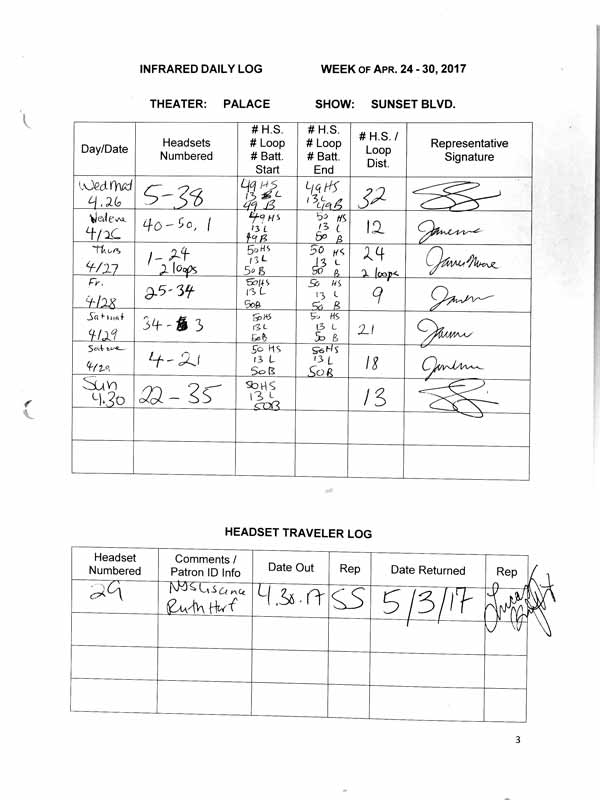 INFRARED DAILY LOG WEEK OF APR. 24 - 30, 2017
THEATER: PALACE SHOW: SUNSET BLVD.
Day/Date Headsets Numbered # H.S. # Loop # Batt. Start # H.S. # Loop # Batt. End # H.S. / Loop Dist. Representative Signature
Wed Mat 4.26 5-38 49 HS 13 L 49 B 49 HS 13 L 49 B 32
4/26 40-50, 1 49 HS 13 L 49 B 50 HS 13 L 50 B 12
Thurs 4/27 1-24 2 loops 50 HS 13 L 50 B 50 HS 13 L 50 B 24 2 loops James Moore
Fr. 4/28 25-34 50 HS 13 L 50B 50 HS 13 L 50 B 9
Sat mat 4/29 34-3 50HS 13 L 50B 50 HS 13 L 50 B 21
Sat eve 4/29 4-21 50 HS 13 L 50B 50HS 13 L 50B 18
Sun 4.30 22-35 50HS 13 L 50B 13
HEADSET TRAVELER LOG
Headset Numbered Comments / Patron ID Info Date Out Rep Date Returned Rep
29 Ruth 4.30.17 SS 5/3/17
3